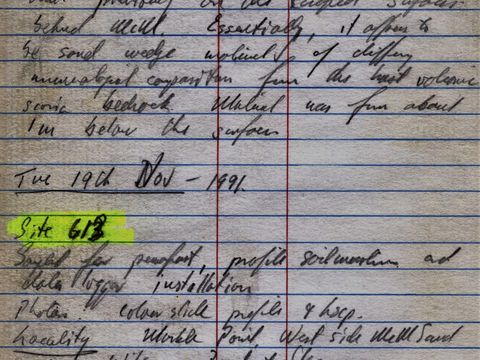 behind McM. Essentially, it appears to
be sand wedge material of differing
mineralogical composition from the host volcanic
scoria bedrock. Material was from about
1m below the surface
Tue 19th Nov - 1991.
Site 613
Sought for permafrost, profile soil moisture ad
data logger installation
Photos: colour slide profiles &
Locality Marble Point, West side McM Sand